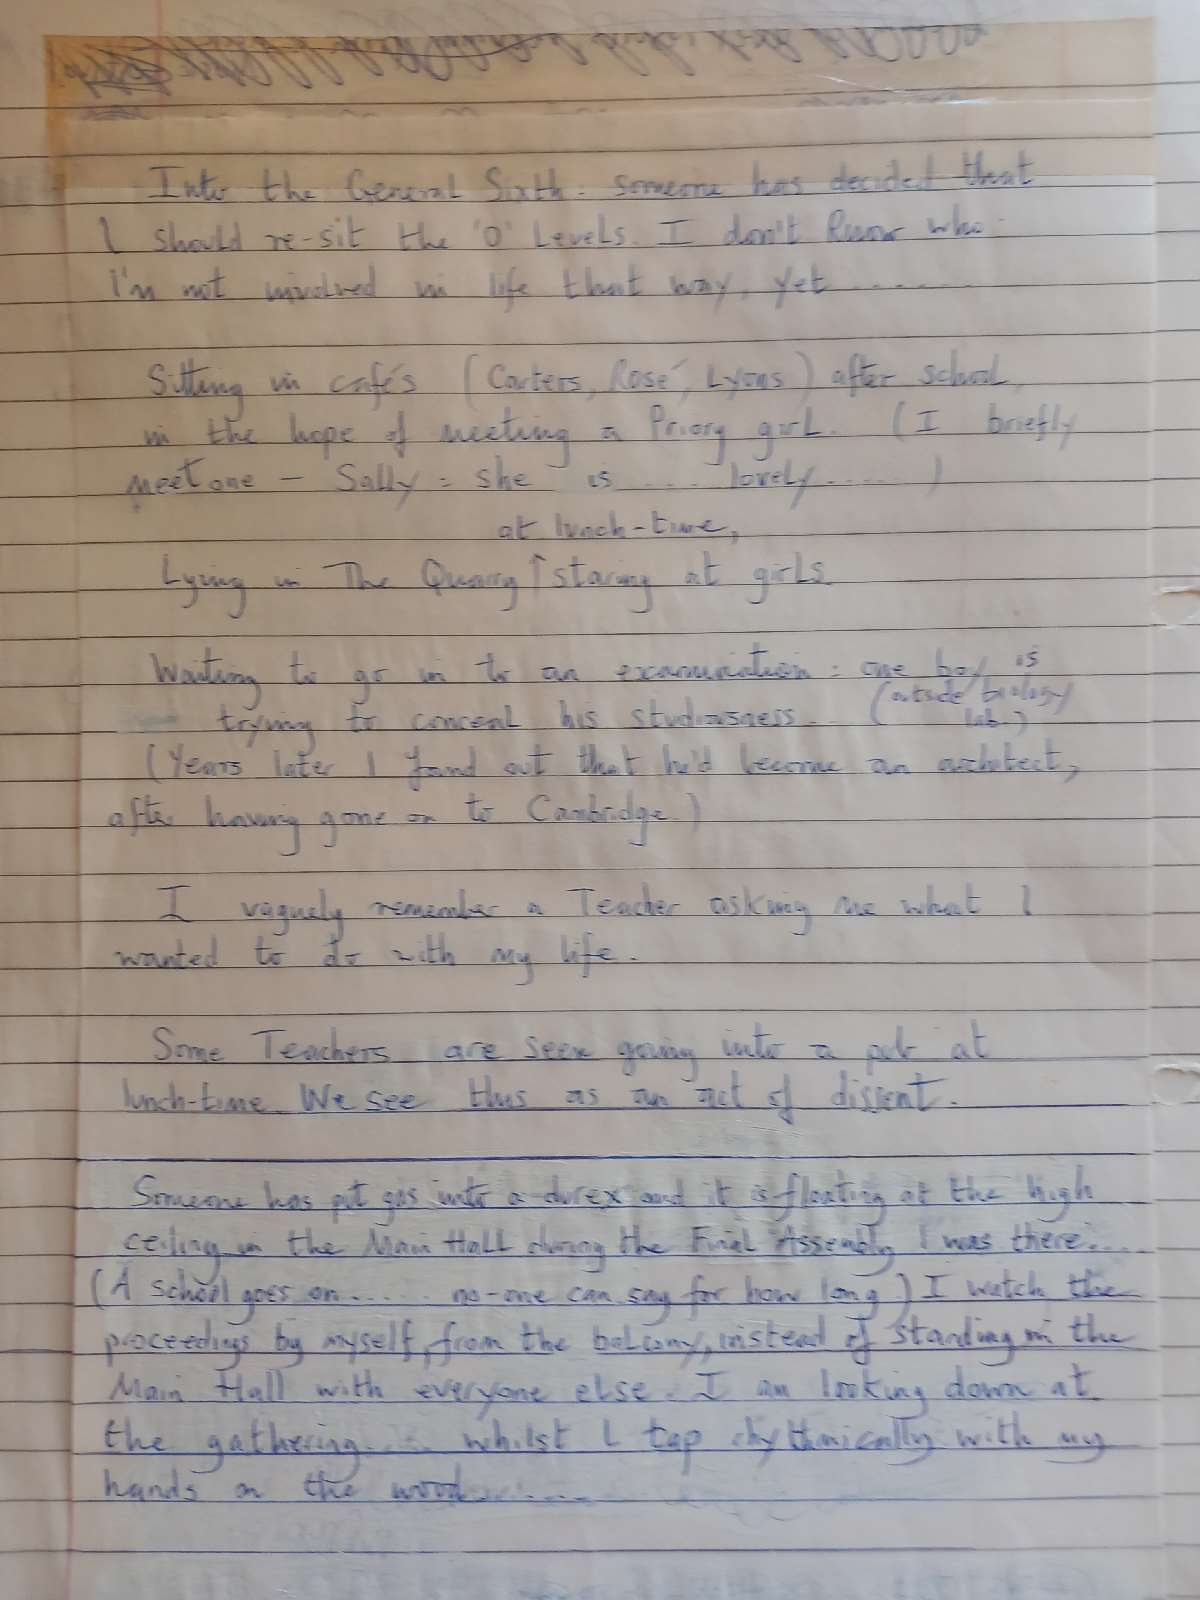 Into the General Sixth: someone has decided that
I should re-sit the 'O' Levels. I don't know who.
I'm not involved in life that way, yet .......
Sitting in café's (Carters, Rosé, Lyons) after school,
in the hope of meeting a Priory girl. (I briefly
meet one – Sally: she is .... lovely .....)
at lunch-time,
Lying in The Quarry ↑ staring at girls
Waiting to go in to an examination: one boy is
trying to conceal his studiousness... (outside biology
lab.)
(Years later I found out that he'd become an architect,
after having gone on to Cambridge.)
I vaguely remember a Teacher asking me what I
wanted to do with my life.
Some Teachers are seen going into a pub at
lunch-time. We see this as an act of dissent.
Someone has put gas into a durex and it is floating at the high
ceiling in the Main Hall during the Final Assembly I was there.....
(A school goes on ...... no-one can say for how long) I watch the
proceedings by myself, from the balcony, instead of standing in the
Main Hall with everyone else. I am looking down at
the gathering...... whilst I tap rhythmically with my
hands on the wood........